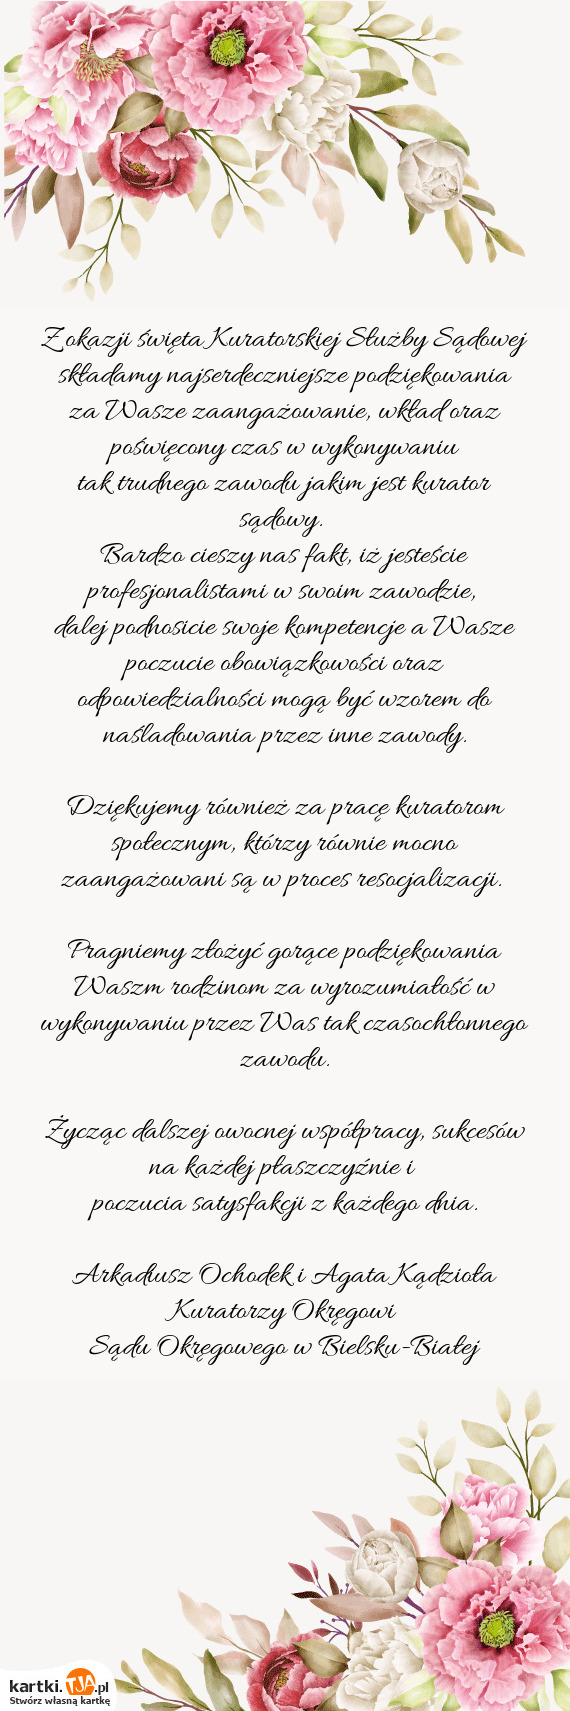 Z okazji święta Kuratorskiej Służby Sądowej
składamy najserdeczniejsze podziękowania
za Wasze zaangażowanie, wkład oraz
poświęcony czas w wykonywaniu
tak trudnego zawodu jakim jest kurator
sądowy.
Bardzo cieszy nas fakt, iż jesteście
profesjonalistami w swoim zawodzie,
dalej podnosicie swoje kompetencje a Wasze
poczucie obowiązkowości oraz
odpowiedzialności mogą być wzorem do
naśladowania przez inne zawody.
Dziękujemy również za pracę kuratorom
społecznym, którzy równie mocno
zaangażowani są w proces resocjalizacji.
Pragniemy złożyć gorące podziękowania
Waszm rodzinom za wyrozumiałość w
wykonywaniu przez Was tak czasochłonnego
zawodu.
Życząc dalszej owocnej współpracy, sukcesów
na każdej płaszczyźnie i
poczucia satysfakcji z każdego dnia.
Arkadiusz Ochodek i Agata Kądzioła
Kuratorzy Okręgowi
Sądu Okręgowego w Bielsku-Białej
kartki.TJA.pl
Stwórz własną kartkę